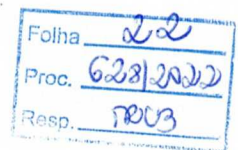 Folha 22
Proc. 628/2022
Resp.